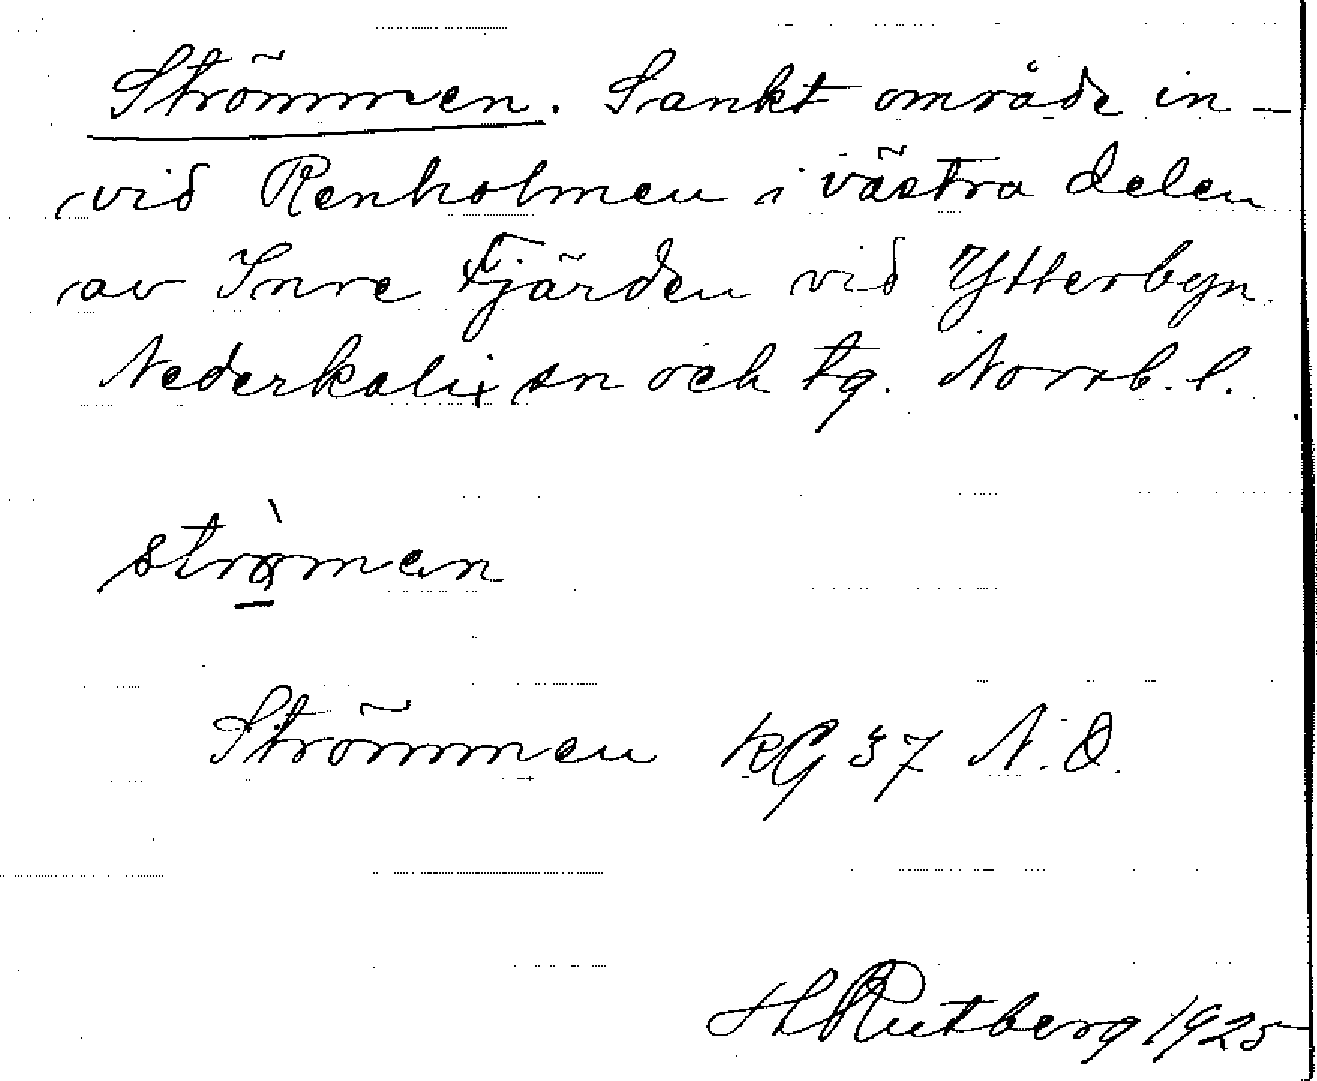 Strömmen. Sankt område in-
vid Renholmen i västra delen
av Inre Fjärden vid Ytterbyn
Nederkalix sn och tg. Norrb. l.
strö̀men
Strömmen KG 37 N.O.
H Rutberg 1925